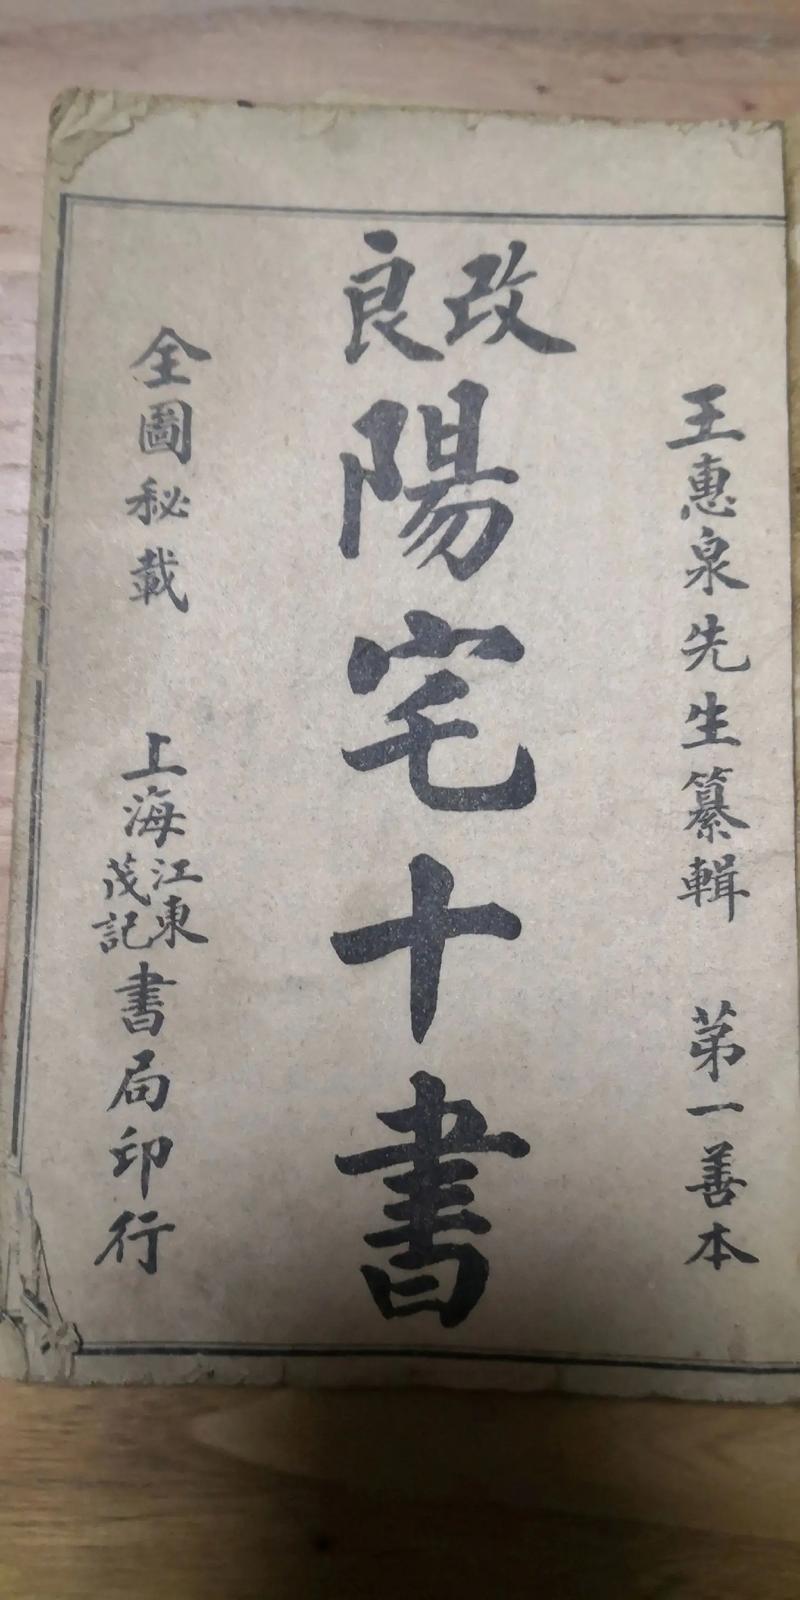 王惠泉先生纂輯 第一善本
改良
陽宅十書
全圖秘載
上海江東茂記書局印行